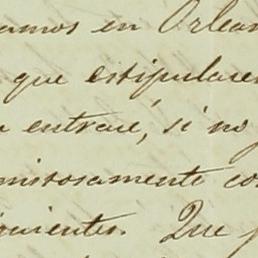 amos en Orlean
que estipulasen
entraré, si no
mistosamente co
guientes. Que